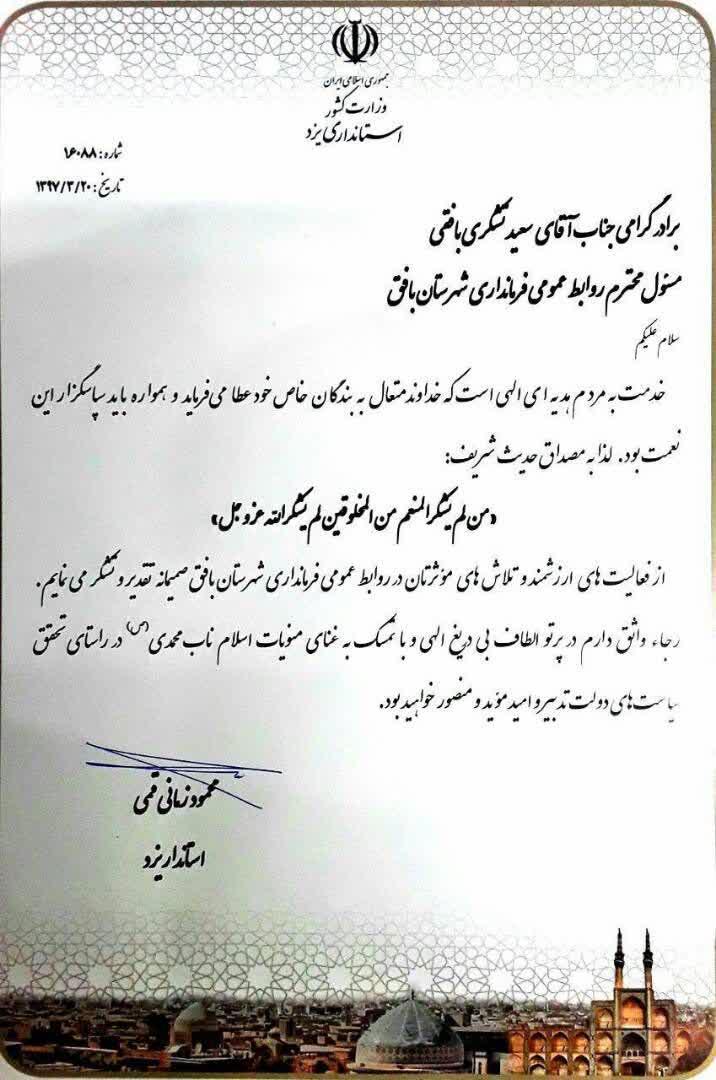 جمهوری اسلامی ایران
وزارت کشور
استانداری یزد
شماره: ۱۶۰۸۸
تاریخ: ۱۳۹۷/۳/۲۰
برادر گرامی جناب آقای سعید تشکری بافقی
مسئول محترم روابط عمومی فرمانداری شهرستان بافق
سلام علیکم
خدمت به مردم هدیه ای الهی است که خداوند متعال به بندگان خاص خود عطا می‌فرماید و همواره باید سپاسگزار این
نعمت بود. لذا به مصداق حدیث شریف:
«من لم یشکر المنعم من المخلوقین لم یشکر الله عزوجل»
از فعالیت های ارزشمند و تلاش های مؤثرتان در روابط عمومی فرمانداری شهرستان بافق صمیمانه تقدیر و تشکر می نمایم.
رجاء واثق دارم در پرتو الطاف بی دریغ الهی و با تمسک به غنای منویات اسلام ناب محمدی (ص) در راستای تحقق
سیاست‌های دولت تدبیر و امید مؤید و منصور خواهید بود.
محمود زمانی قمی
استاندار یزد